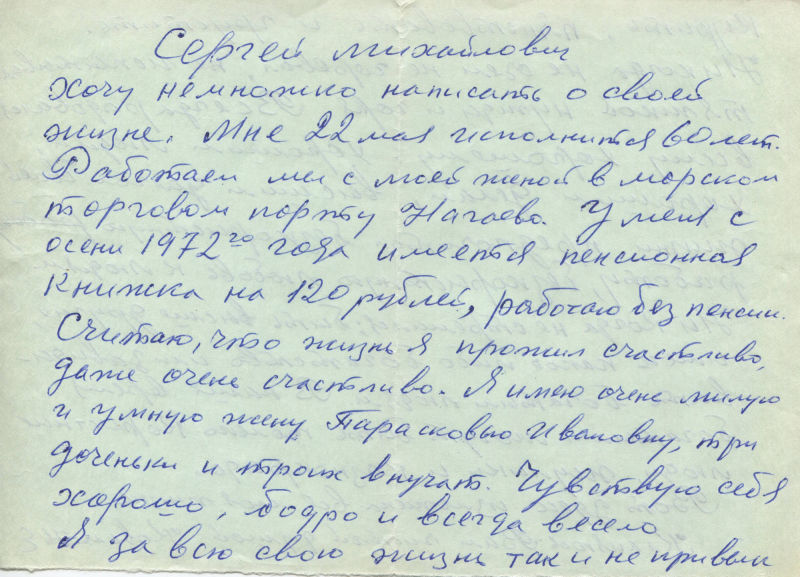 Сергей Михайлович
хочу немножко написать о своей
жизне. Мне 22 мая исполнится 60 лет.
Работаем мы с моей женой в морском
торговом порту Нагаево. У меня с
осени 1972го года имеется пенсионная
книжка на 120 рублей, работаю без пенсии.
Считаю, что жизнь я прожил счастливо,
даже очень счастливо. Я имею очень милую
и умную жену Парасковью Ивановну, три
доченьки и троих внучат. Чувствую себя
хорошо, бодро и всегда весело
Я за всю свою жизнь так и не привык